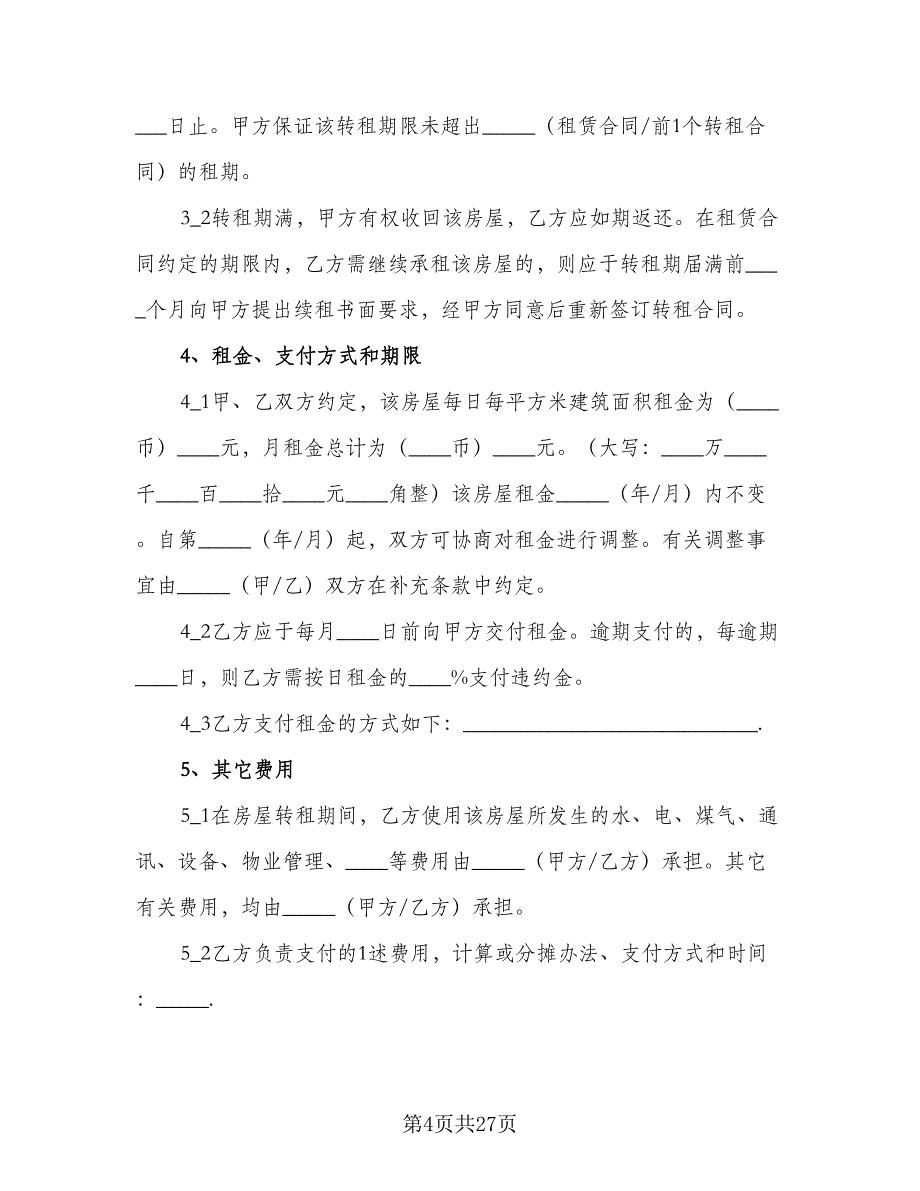 ___日止。甲方保证该转租期限未超出_____（租赁合同/前1个转租合
同）的租期。
3_2转租期满，甲方有权收回该房屋，乙方应如期返还。在租赁合
同约定的期限内，乙方需继续承租该房屋的，则应于转租期届满前___
_个月向甲方提出续租书面要求，经甲方同意后重新签订转租合同。
4、租金、支付方式和期限
4_1甲、乙双方约定，该房屋每日每平方米建筑面积租金为（____
币）____元，月租金总计为（____币）____元。（大写：____万____
千____百____拾____元____角整）该房屋租金_____（年/月）内不变
。自第_____（年/月）起，双方可协商对租金进行调整。有关调整事
宜由_____（甲/乙）双方在补充条款中约定。
4_2乙方应于每月____日前向甲方交付租金。逾期支付的，每逾期
____日，则乙方需按日租金的____%支付违约金。
4_3乙方支付租金的方式如下：____________________________.
5、其它费用
5_1在房屋转租期间，乙方使用该房屋所发生的水、电、煤气、通
讯、设备、物业管理、____等费用由_____（甲方/乙方）承担。其它
有关费用，均由_____（甲方/乙方）承担。
5_2乙方负责支付的1述费用，计算或分摊办法、支付方式和时间
：_____.
第4页共27页